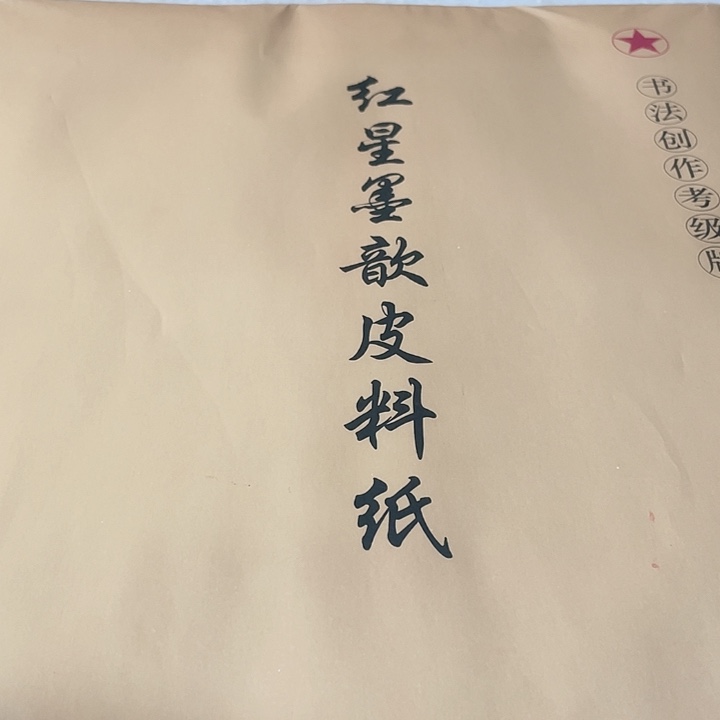 红星墨歆皮料纸
书法创作考级版